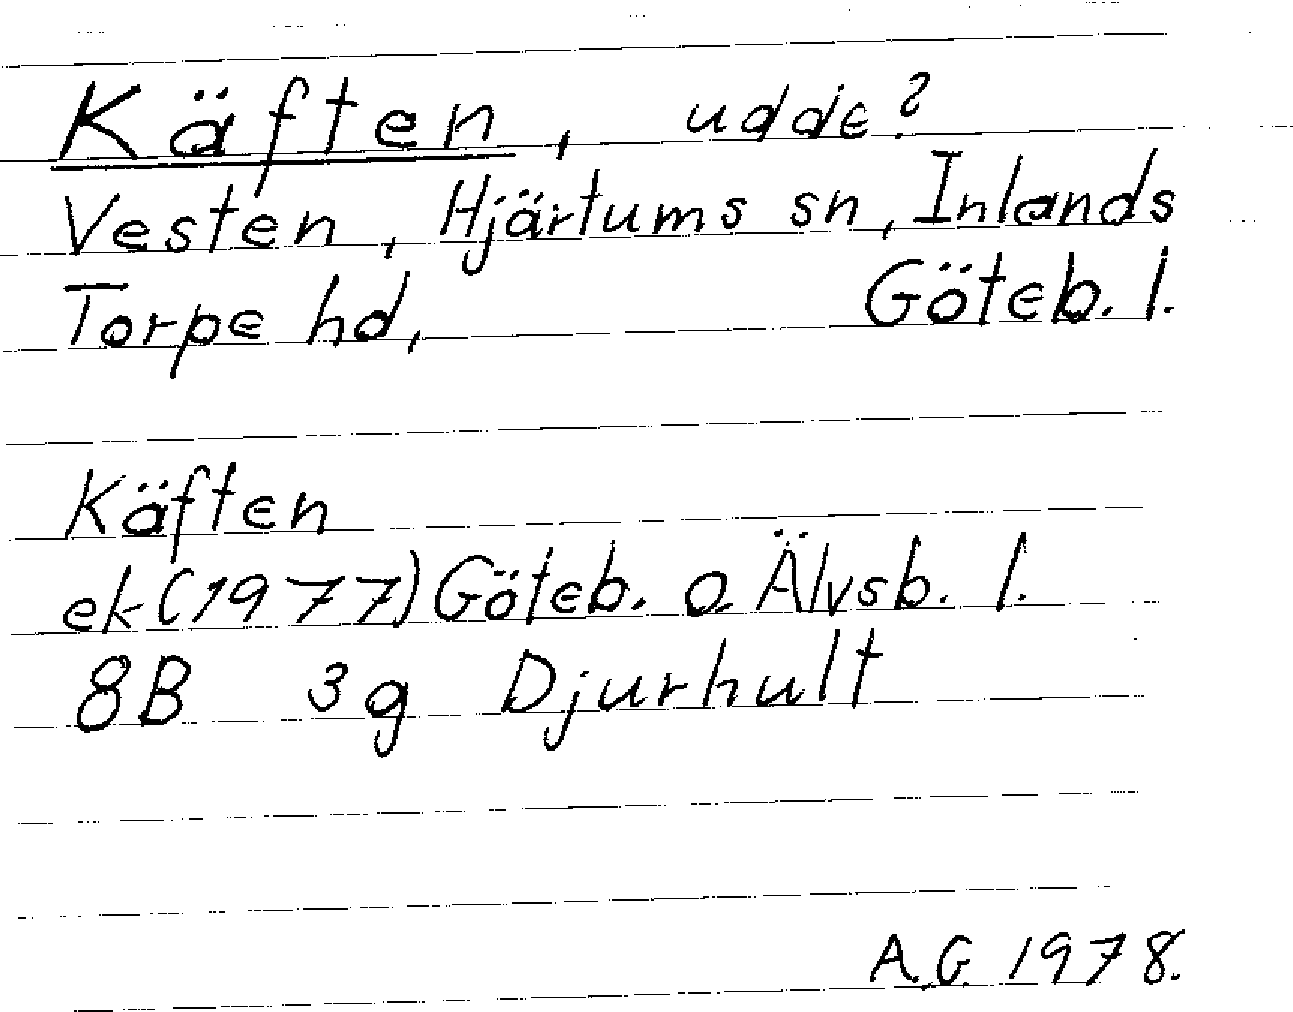 Käften, udde?
Vesten, Hjärtums sn, Inlands
Torpe hd, Göteb. l.
Käften
ek (1977) Göteb. o. Älvsb. l.
8B 3g Djurhult
A.G. 1978.